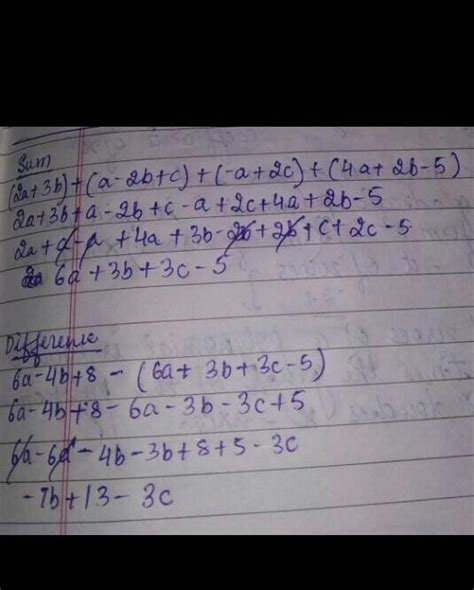 Sum
(2a+3b)+(a-2b+c)+(-a+2c)+(4a+2b-5)
2a+3b+a-2b+c-a+2c+4a+2b-5
2a+a-a+4a+3b-2b+2b+c+2c-5
6a+3b+3c-5
Difference
6a-4b+8-(6a+3b+3c-5)
6a-4b+8-6a-3b-3c+5
6a-6a-4b-3b+8+5-3c
-7b+13-3c